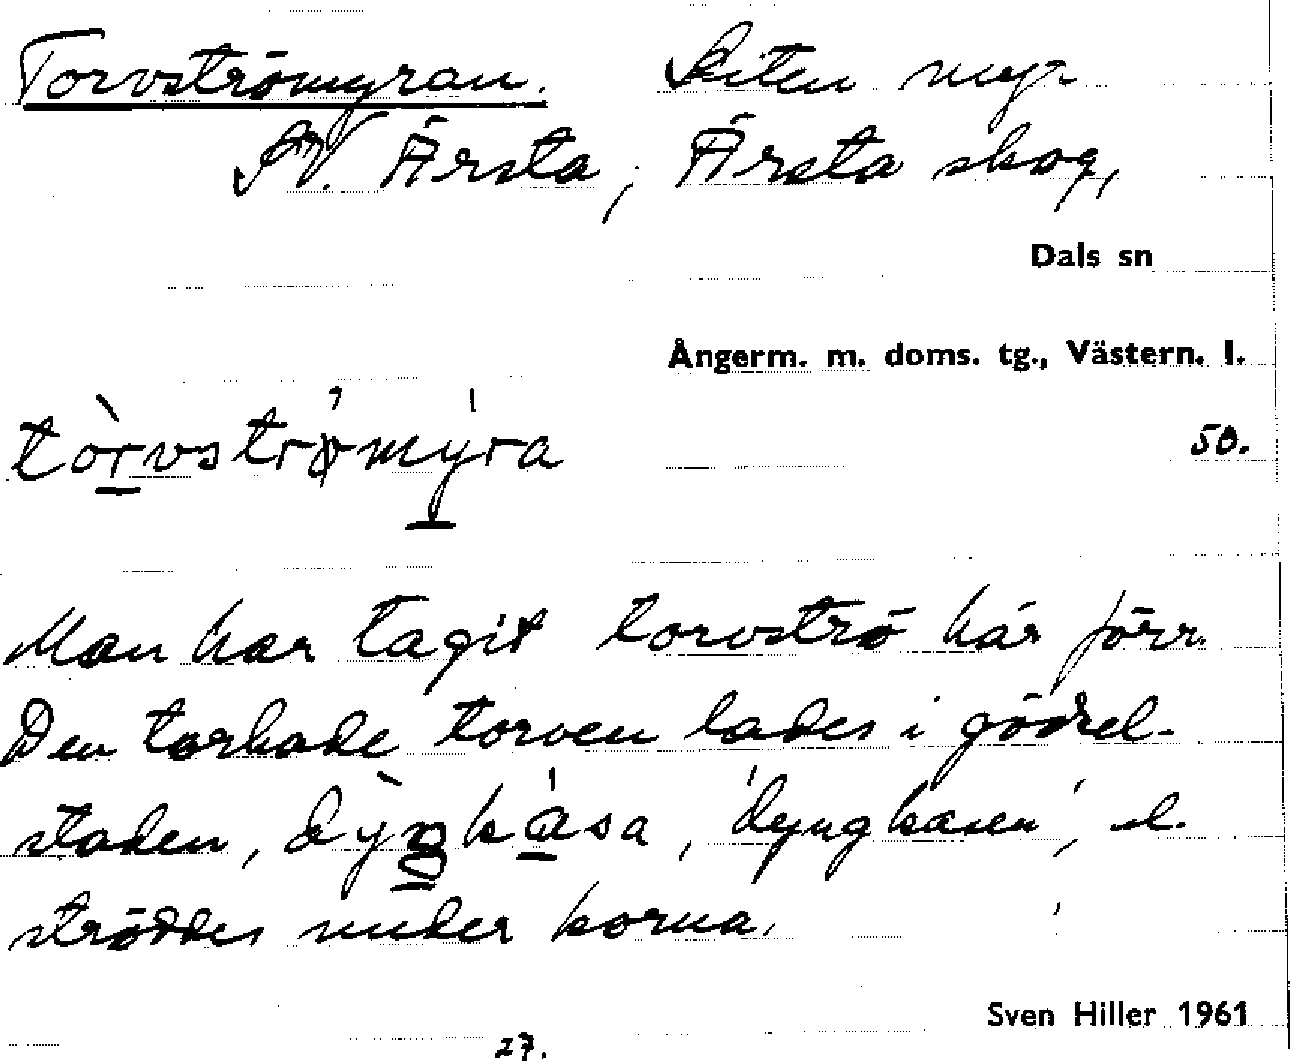 Torvströmyran. Liten myr
SV. Ärsta, Ärsta skog,
Dals sn
Ångerm. m. doms. tg., Västern. l.
tòrvstrømýra
50.
Man har tagit torvströ här förr.
Den torkade torven lades i gödsel-
staden, dỳŋkása, 'dyngkasen', el.
ströddes under korna.
Sven Hiller 1961
27.